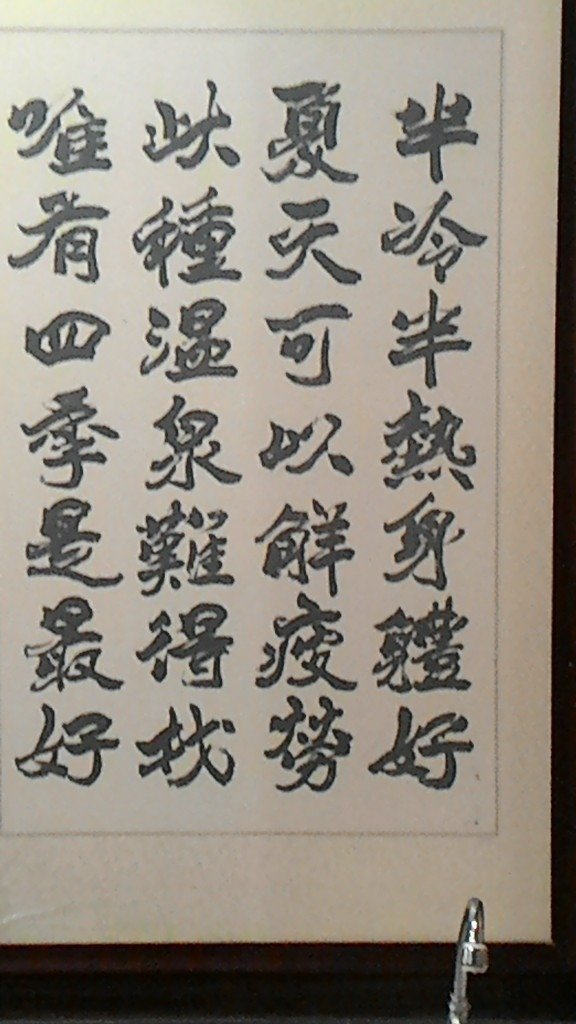 半冷半熱身體好
夏天可以解疲勞
此種溫泉難得找
唯有四季是最好